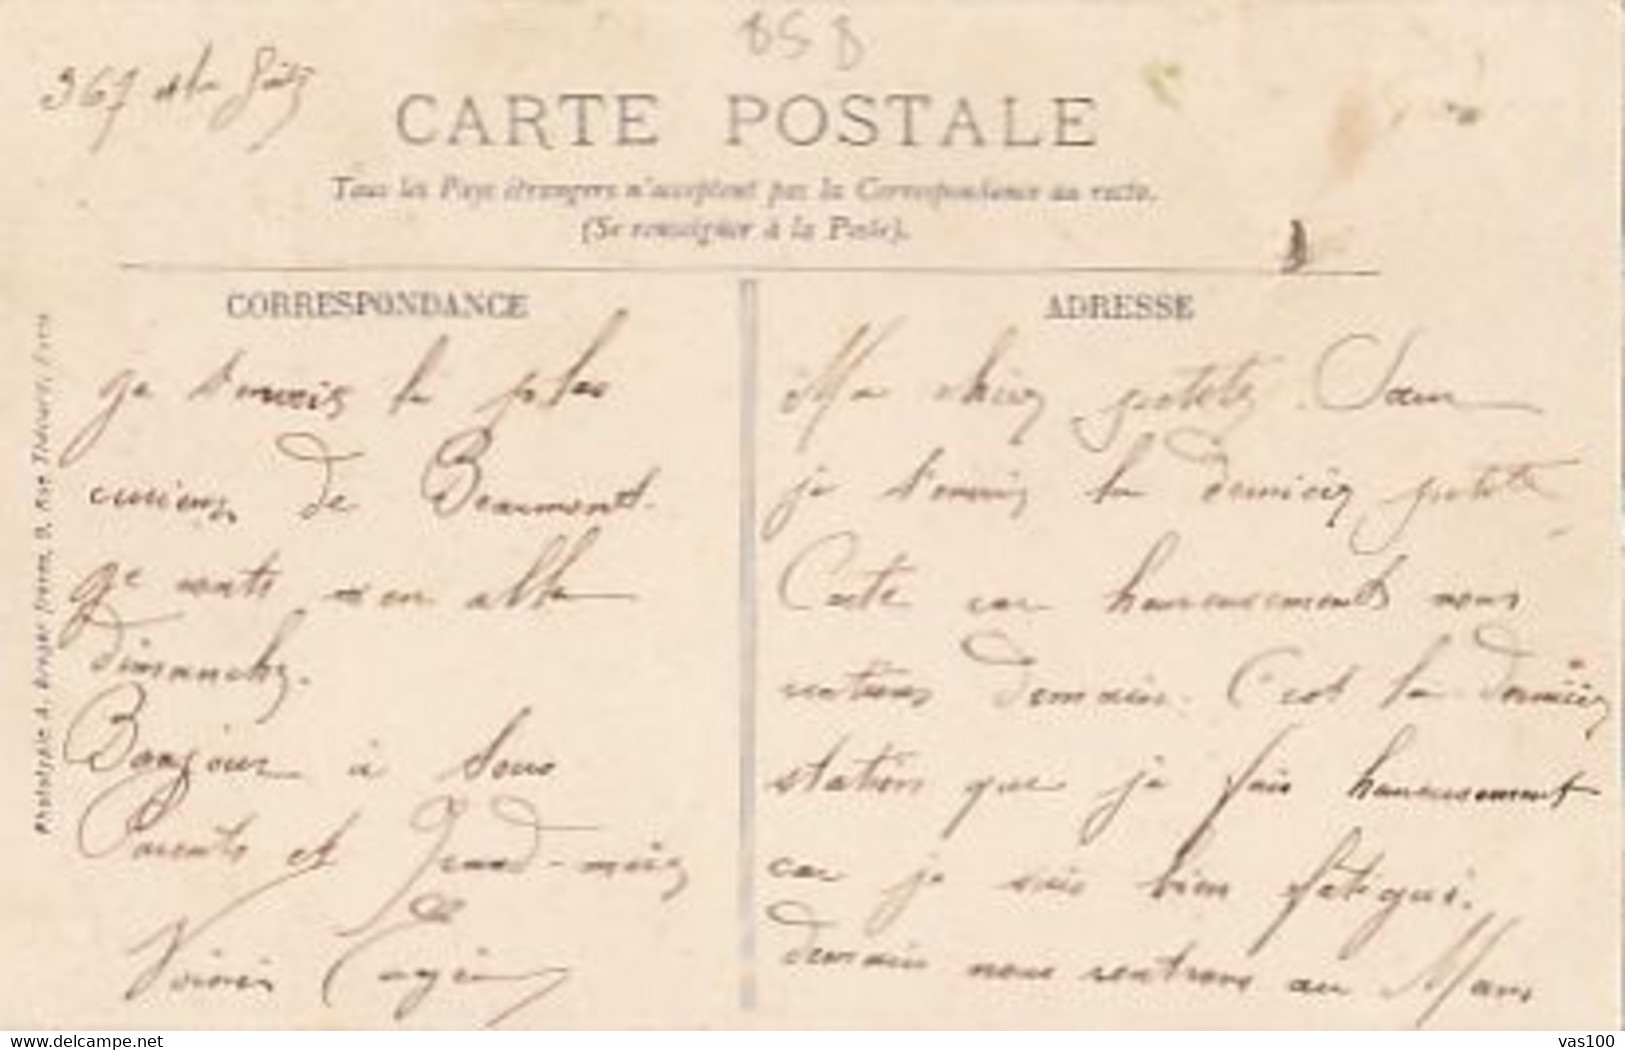 85 B
367
CARTE POSTALE
Tous les Pays étrangers n'acceptent pas la Correspondance au recto.
(Se renseigner à la Poste).
CORRESPONDANCE
je t'envois la plus
curieux de Beaumont.
je vouté m'en alle
dimanche.
Bonjour à tous
Parents et Grand-mère
Voisin Eugène
ADRESSE
Ma chère petite Sœur
je t'envois la dernière petite
Carte car heureusements nous
rentrons demain. C'est la dernière
station que je fais heureusement
car je suis bien fatigué.
demain nous rentrons au Mans
Phototypie A. Breger frères, 9, Rue Thénard, Paris
https://www.delcampe.net
vas100